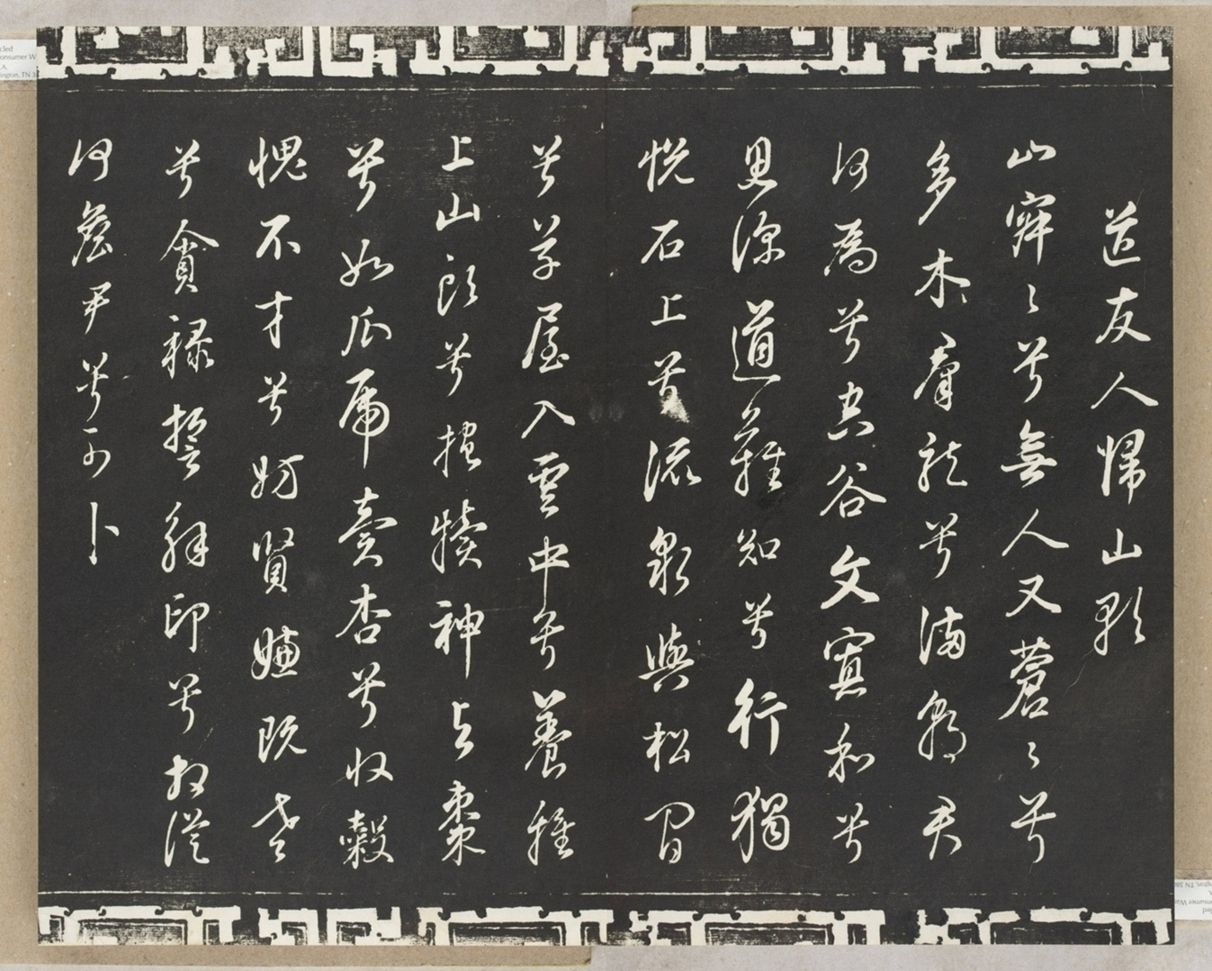 送友人歸山歌
山寂々兮無人又蒼々兮
多木羣龍兮滿朝君
何為兮空谷文寡和兮
思深道難知兮行獨
悅石上兮流泉與松間
兮草屋入雲中兮養雞
上山頭兮抱犢神與棗
兮如瓜虎賣杏兮收穀
愧不才兮妨賢嫌既老
兮貪祿誓解印兮相從
何詹尹兮可卜